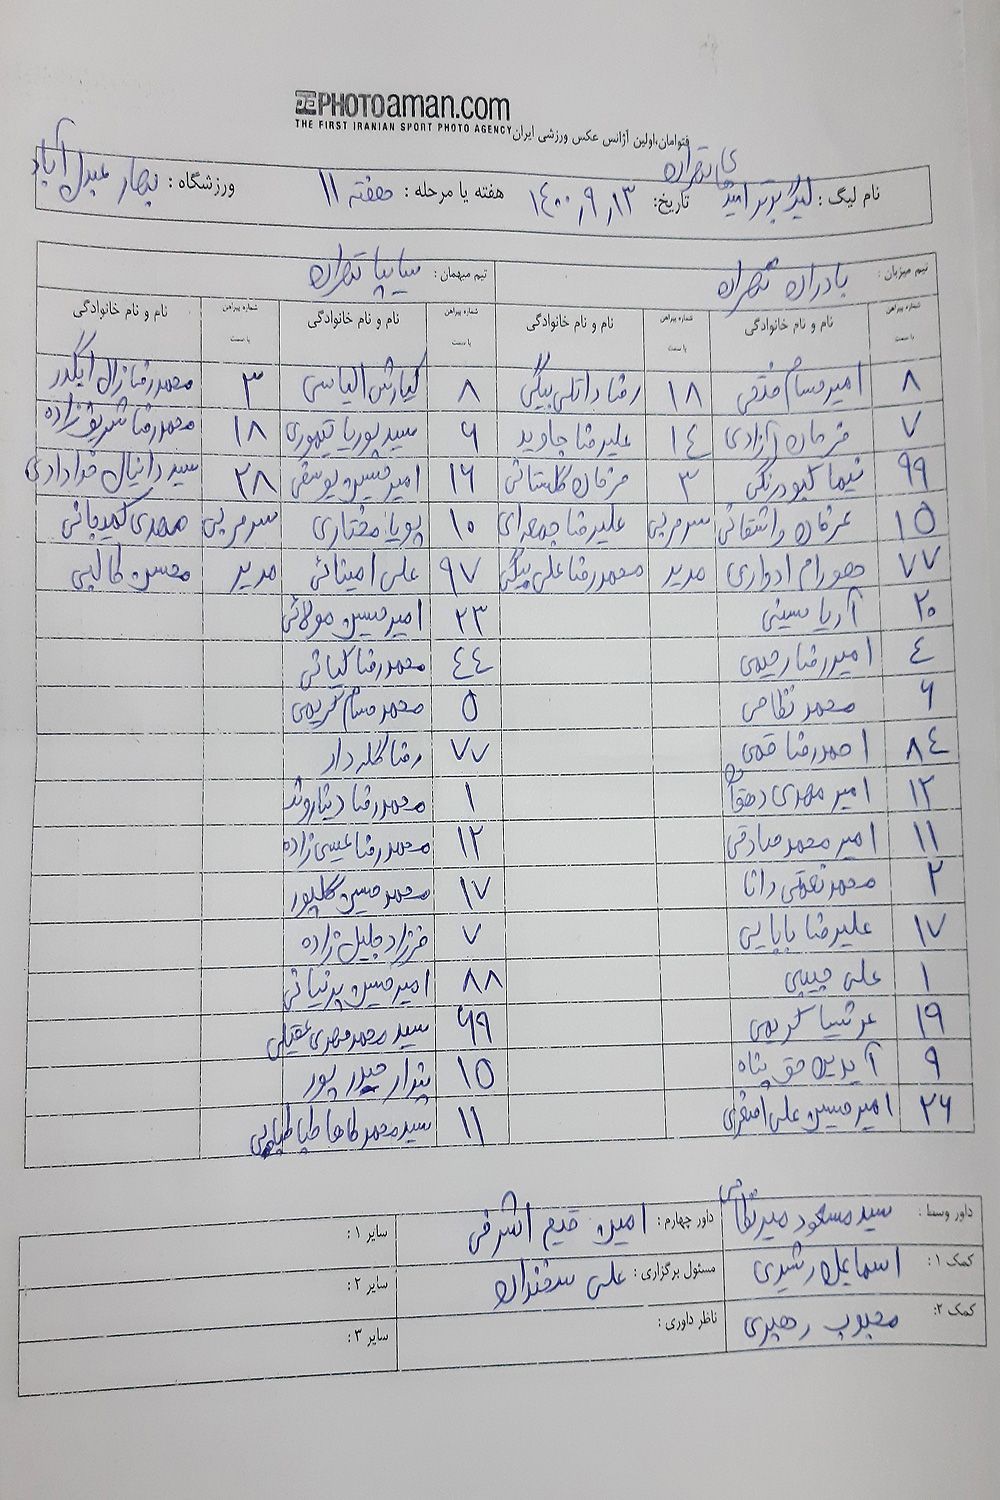 PHOTOaman.com
THE FIRST IRANIAN SPORT PHOTO AGENCY
فتوامان،اولین آژانس عکس ورزشی ایران
نام لیگ : لیگ برتر امیدهای تهران تاریخ: ۱۴۰۰,۹,۱۳ هفته یا مرحله : هفته ۱۱ ورزشگاه : بهار عبدل آباد
تیم میزبان : بادران تهران تیم میهمان : سایپا تهران
شماره پیراهن یا سمت نام و نام خانوادگی شماره پیراهن یا سمت نام و نام خانوادگی شماره پیراهن یا سمت نام و نام خانوادگی شماره پیراهن یا سمت نام و نام خانوادگی
۸ امیرحسام فتحی ۱۸ رضا داتلی بیگی ۸ کیارش الیاسی ۳ محمدرضا زال ایگدر
۷ فرحان آزادی ۱۴ علیرضا جاوید ۶ سید پوریا تیموری ۱۸ محمدرضا شریف زاده
۹۹ نیما کبودرنگی ۳ عرفان گلستانی ۱۶ امیرحسین یوسفی ۲۸ سید دانیال خدادادی
۱۵ عرفان واشقانی سرمربی علیرضا چمعه‌ای ۱۰ پویا مختاری سرمربی مهدی کمیجانی
۷۷ مهرام ادواری مدیر محمدرضا علی بیگی ۹۷ علی امینائی مدیر محسن طالبی
۲۰ آریا حسینی ۲۳ امیرحسین مولائی
۴ امیررضا رحیمی ۴۴ محمدرضا کیانی
۶ محمد نظامی ۵ محمد حسام کریمی
۸۴ احمدرضا قمی ۷۷ رضا گله دار
۱۲ امیر مهدی دهقان ۱ محمدرضا دیناروند
۱۱ امیر محمد صادقی ۱۲ محمدرضا عیسی زاده
۲ محمد نعمتی دانا ۱۷ محمدحسین گلپور
۱۷ علیرضا بابایی ۷ فرزاد جلیل زاده
۱ علی حبیبی ۸۸ امیرحسین پرنیانی
۱۹ عرشیا کریمی ۶۹ سید محمدمهدی عقیلی
۹ آیدین حق پناه ۱۵ پندار حیدر پور
۲۶ امیرحسین علی اصغری ۱۱ سید محمد طاها طباطبایی
داور وسط : سید مسعود میرنظامی داور چهارم : امین قدیم اشرفی سایر ۱ :
کمک ۱ : اسماعیل رشیدی مسئول برگزاری : علی سخندان سایر ۲ :
کمک ۲: محبوب رهبری ناظر داوری : سایر ۳ :